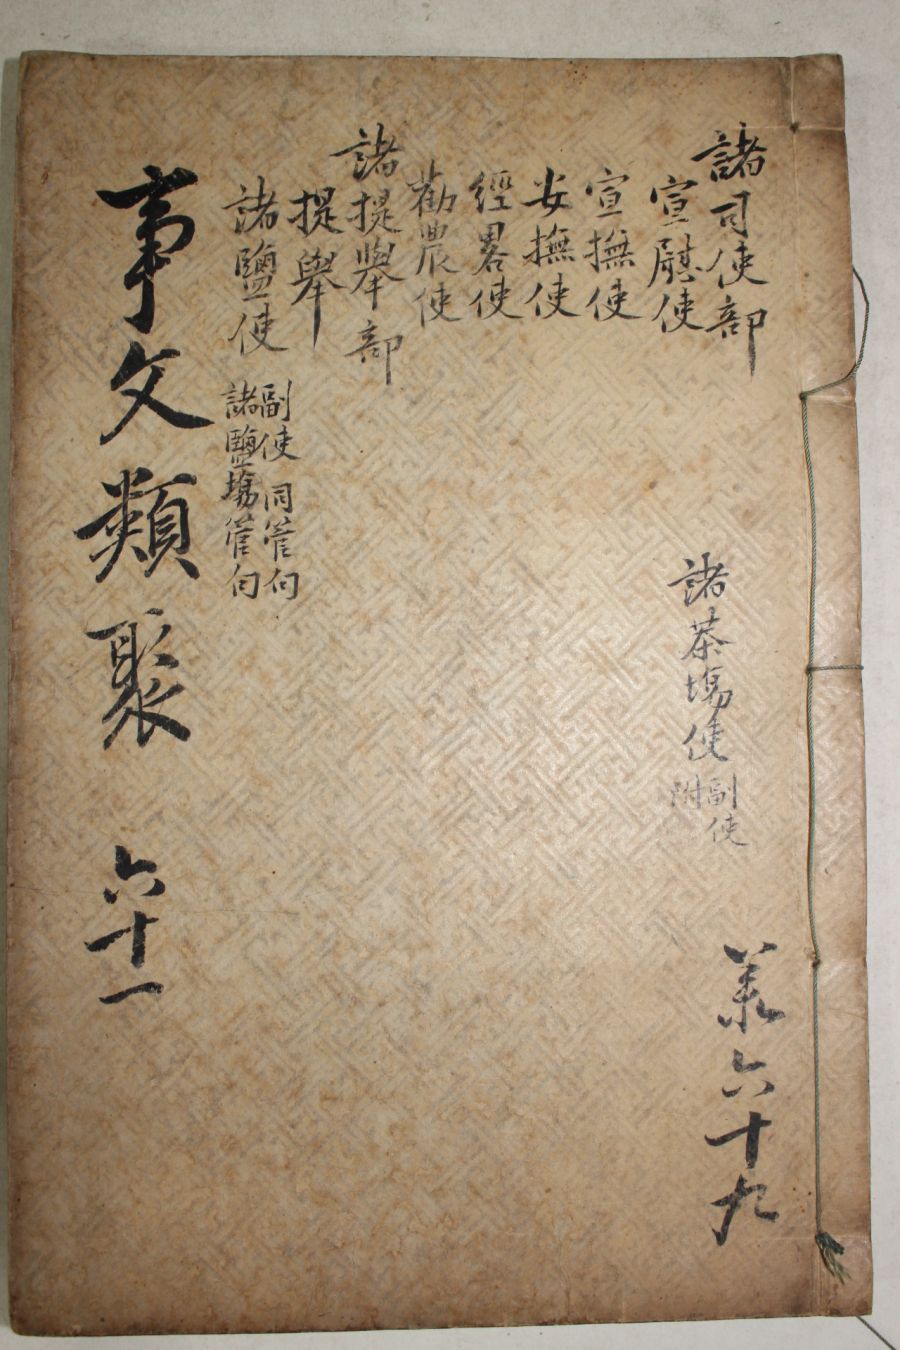 諸司使部
宣慰使
宣撫使
安撫使
經畧使
勸農使
諸提擧部
提擧
諸鹽使
副使 同管勾
諸鹽塲管勾
諸茶塲使
副使
附
事文類聚
六十一
共六十九